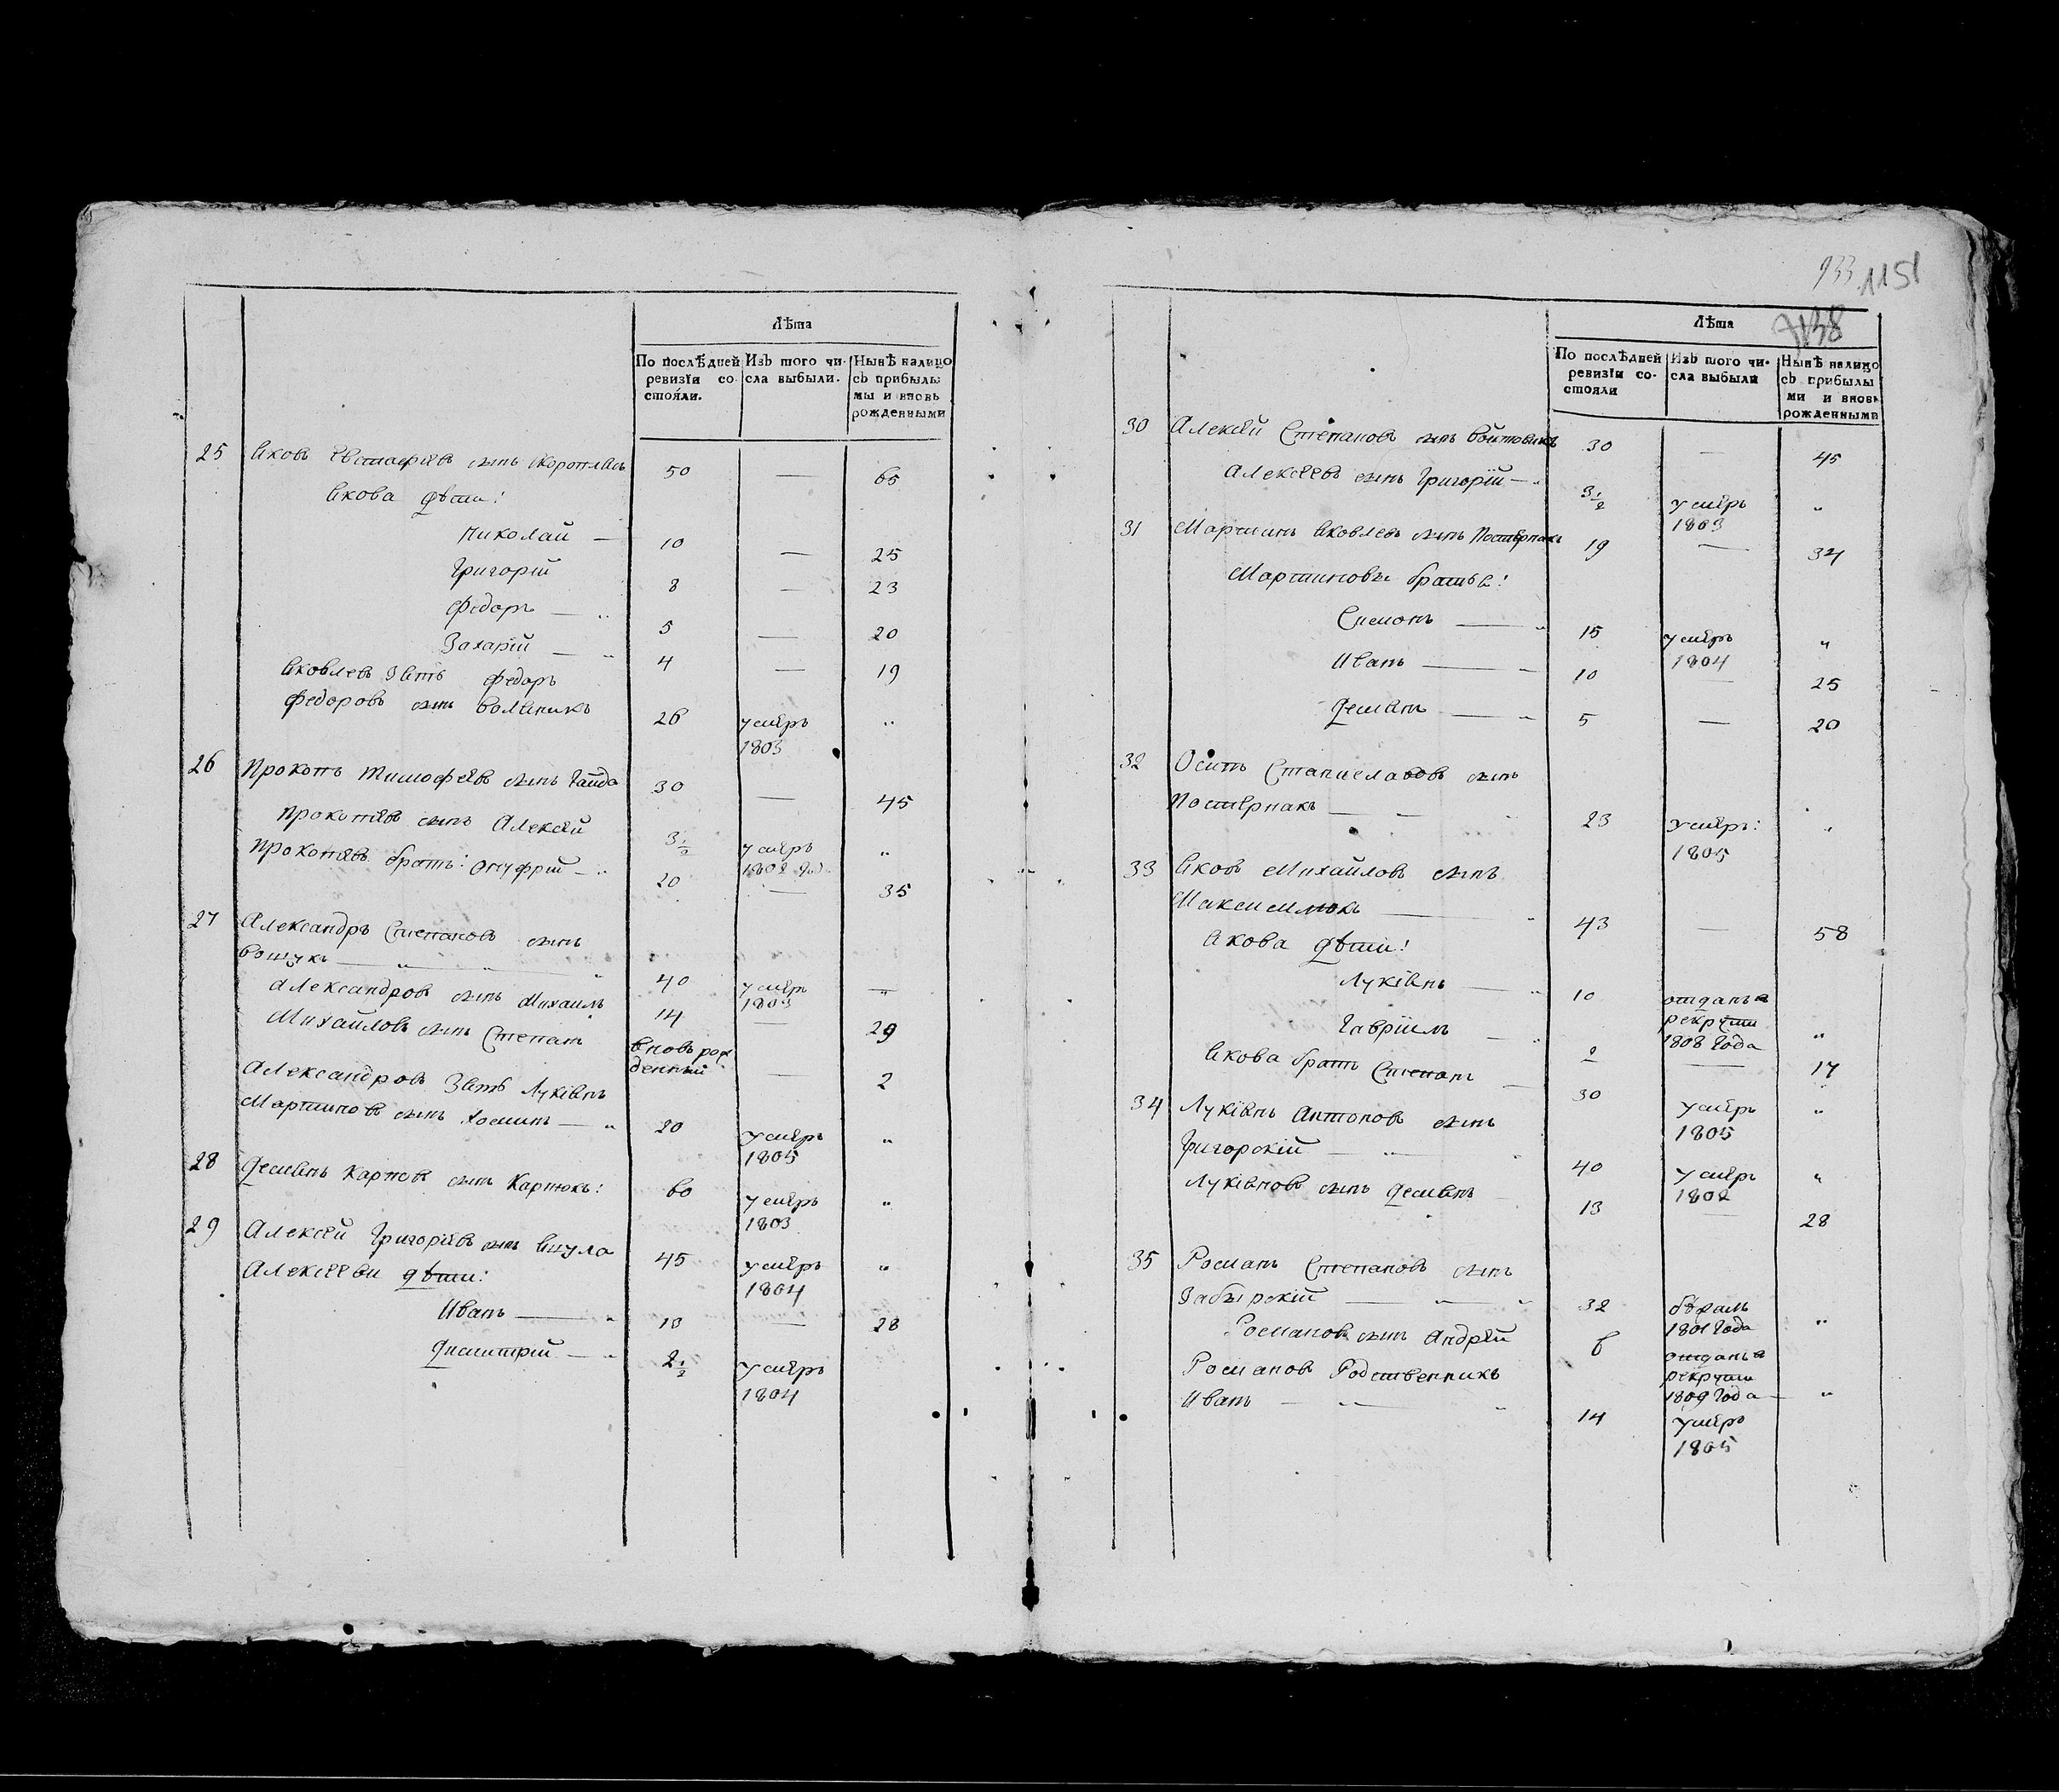 Лѣта
По послѣдней ревизіи состояли.
Изъ того числа выбыли.
Нынѣ налицо съ прибылыми и вновь рожденными
25 Яковъ Евстафіевъ сынъ 50 — 65
Якова дѣти:
Николай — 10 — 25
Григорій 8 — 23
Федоръ — „ 5 — 20
Захарій — „ 4 — 19
Яковлевъ Зять Федоръ
Федоровъ сынъ Воляникъ 26 умеръ 1803 „
26 Прокопъ Тимофѣевъ сынъ Гайда 30 — 45
Прокопіевъ сынъ Алексѣй 3 1/2 умеръ 1802 „
Прокопіевъ братъ: Онуфрій — „ 20 — 35
27 Александръ Степановъ сынъ
Вошукъ — „ „ „ 40 умеръ 1803 „
Александровъ сынъ Михаилъ 14 — 29
Михайловъ сынъ Степанъ вновь рожденный — 2
Александровъ Зять Лукіянъ
Мартиновъ сынъ Хоминъ — „ 20 умеръ 1805 „
28 Демянъ Карповъ сынъ Карпюкъ: 60 умеръ 1803 „
29 Алексѣй Григоріевъ сынъ Яцула 45 умеръ 1804 „
Алексѣеви дѣти:
Иванъ — „ 13 — 28
Дмитрій — „ 2 1/2 умеръ 1804
933 1151
1138
Лѣта
По послѣдней ревизіи состояли
Изъ того числа выбыли
Нынѣ налицо съ прибылыми и вновь рожденными
30 Алексѣй Степановъ сынъ Войтовикъ 30 — 45
Алексѣевъ сынъ Григорій — „ 3 1/2 умеръ 1803 „
31 Мартинъ Яковлевъ сынъ Постернакъ 19 — 34
Мартиновы братья:
Симонъ — „ 15 умеръ 1804 „
Иванъ — „ 10 — 25
Демянъ — „ 5 — 20
32 Осипъ Станиславовъ сынъ
Постернакъ — — „ 23 умеръ: 1805 „
33 Яковъ Михайловъ сынъ
Максимлюкъ — „ 43 — 58
Якова дѣти:
Лукіянъ — „ 10 отданъ в рекрути 1808 Года „
Гавріилъ — „ 2 — 17
Якова братъ Степанъ — 30 умеръ 1805 „
34 Лукіянъ Антоновъ сынъ
Григорскій — „ „ 40 умеръ 1802 „
Лукіяновъ сынъ Демянъ 13 — 28
35 Романъ Степановъ сынъ
Забырскій — „ „ 32 бѣжалъ 1801 Года „
Романовъ сынъ Андрѣй 6 отданъ в рекрути 1809 Года — „
Романовъ Родственникъ
Иванъ — „ — „ 14 умеръ 1805